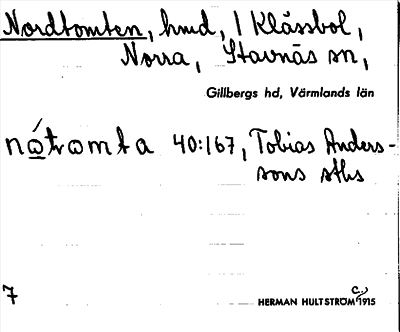 Nordtomten, hmd, 1 Klässbol,
Norra, Stavnäs sn,
Gillbergs hd, Värmlands län
nåtromta 40:167, Tobias Anders-
sons sths
7
c.
HERMAN HULTSTRÖM 1915